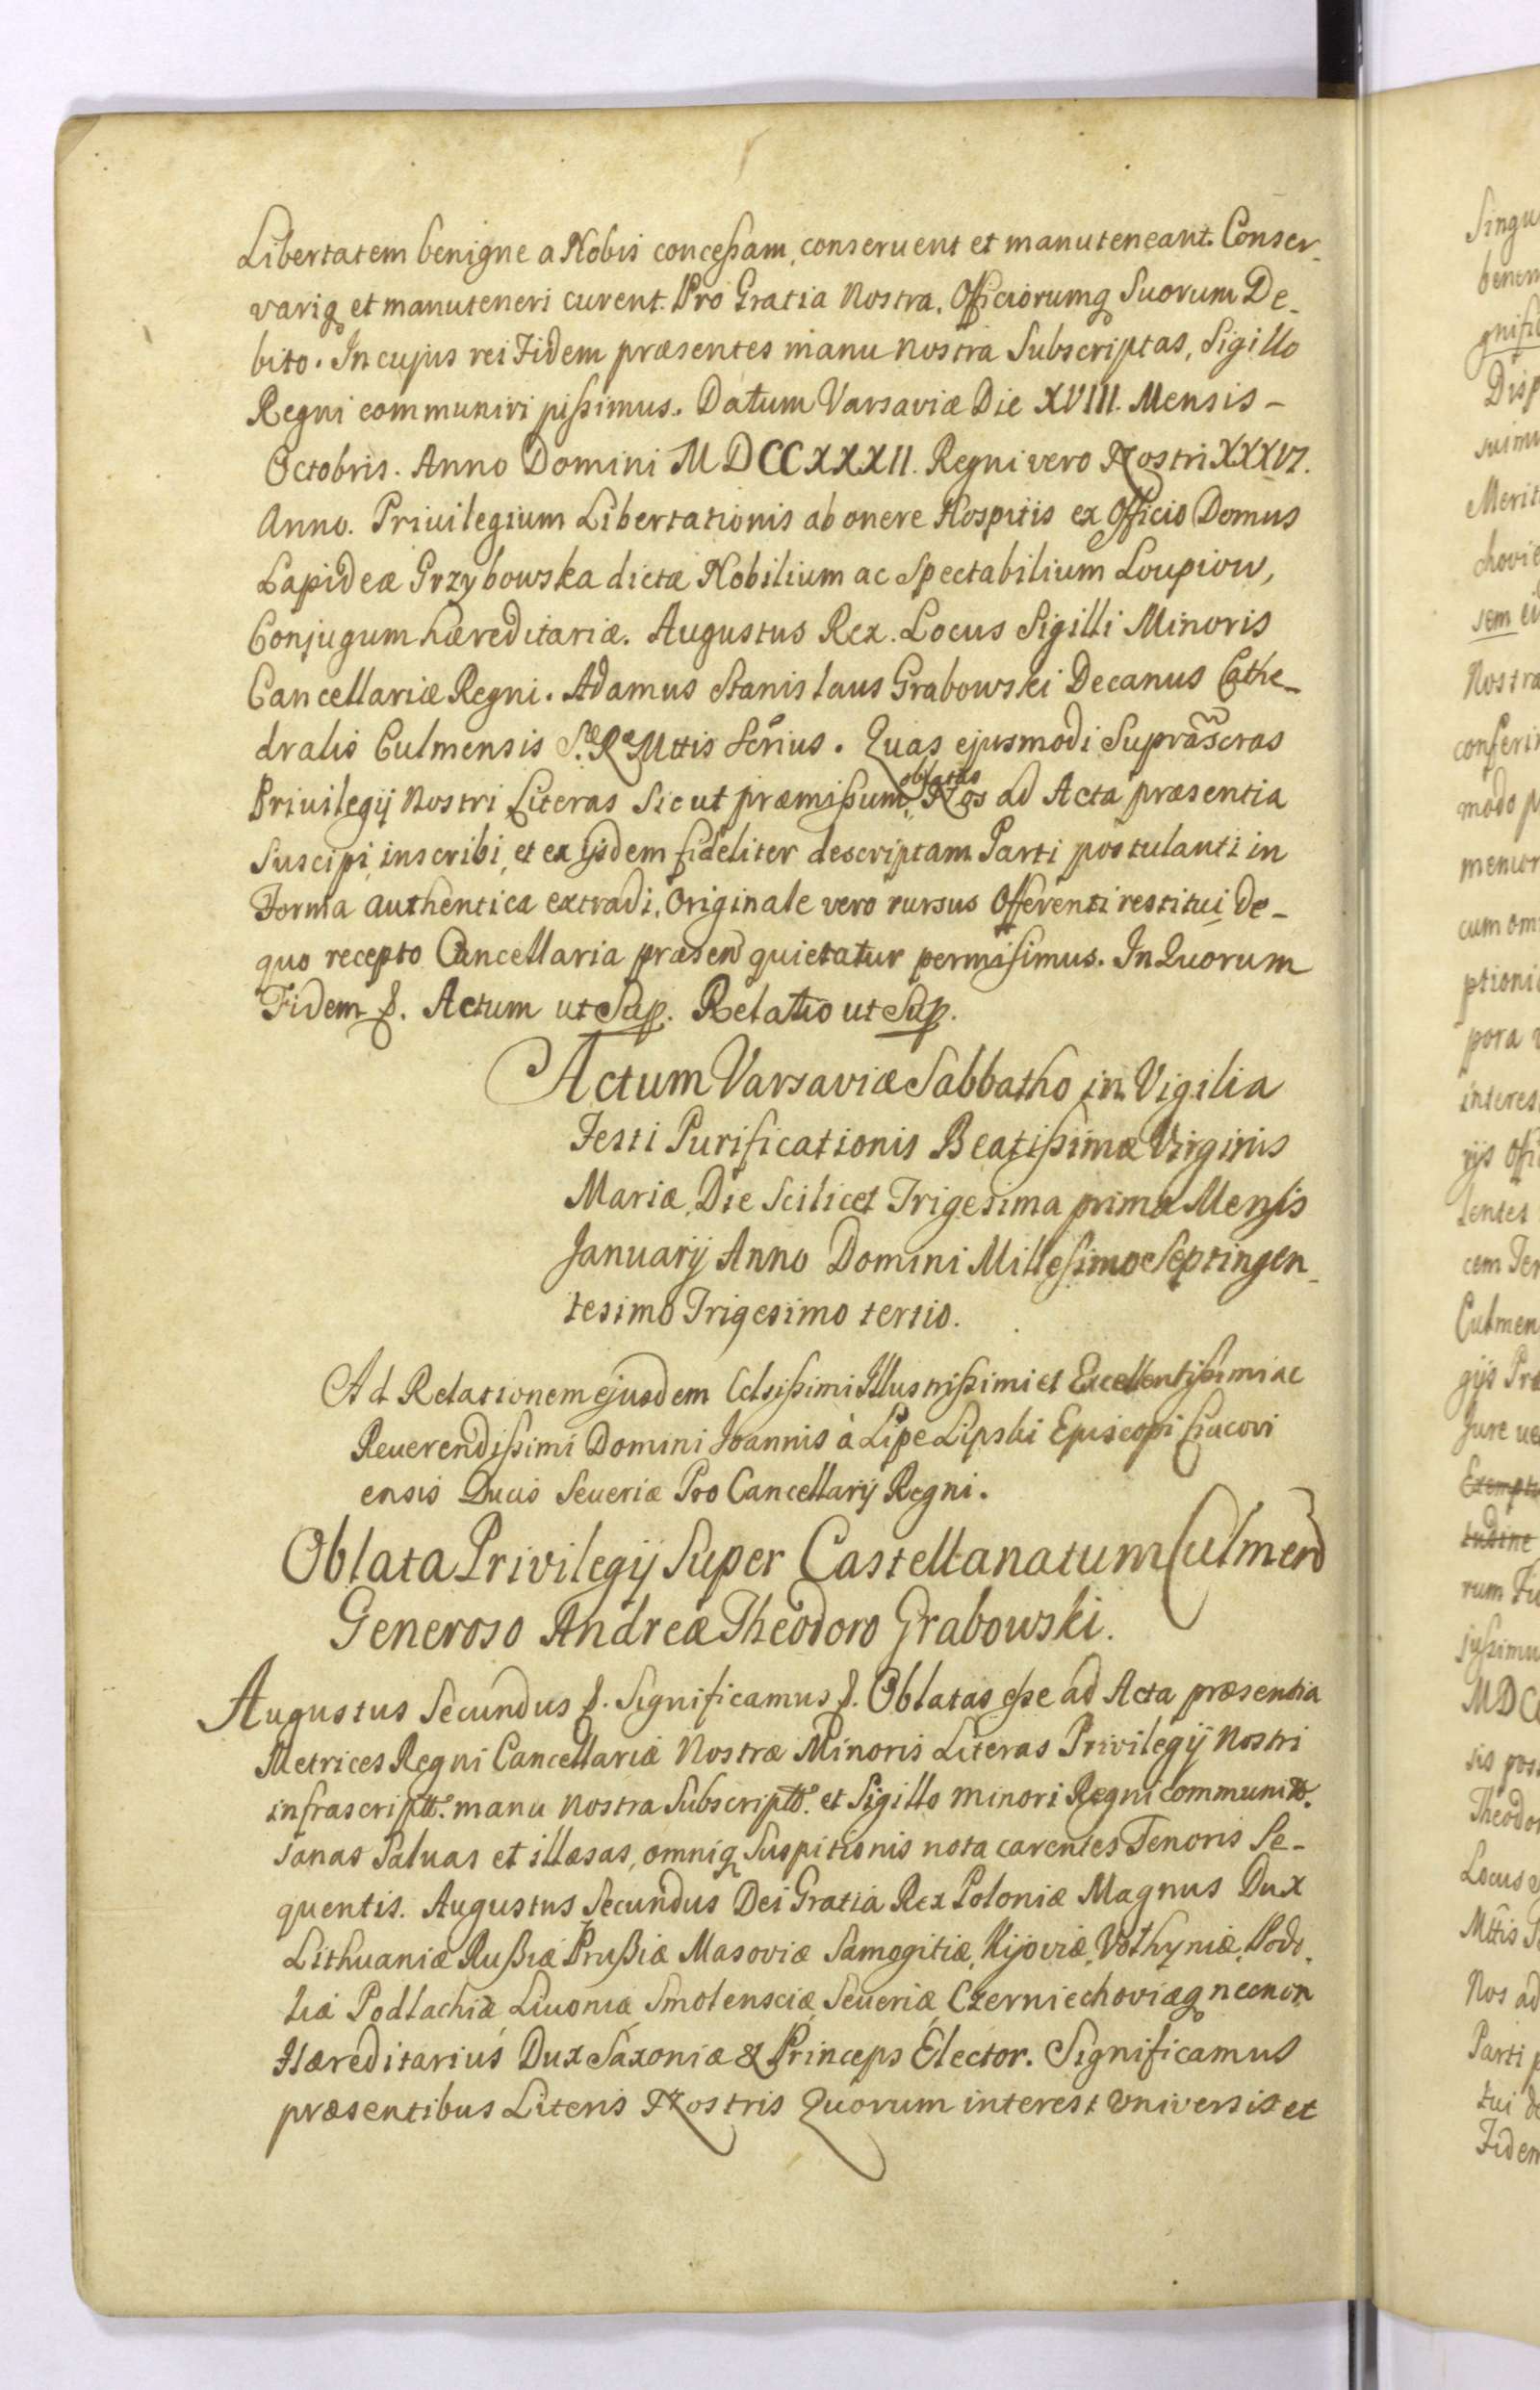 Libertatem benigne a Nobis concessam, conseruent et manuteneant. Conser-
variq et manuteneri curent. Pro Gratia Nostra, Officiorumq Suorum De-
bito. In cujus rei Fidem præsentes manu nostra Subscriptas, Sigillo
Regni communiri pissimus. Datum Varsaviæ Die XVIII. Mensis -
Octobris. Anno Domini MDCCXXXII. Regni vero Nostri XXXVI.
Anno. Privilegium Libertationis ab onere Hospitis ex Officio Domus
Lapideæ Grzybowska dictæ Nobilium ac Spectabilium Loupiow,
Conjugum hæreditariæ. Augustus Rex. Locus Sigilli Minoris
Cancellariæ Regni. Adamus Stanislaus Grabowski Decanus Cathe-
dralis Culmensis S.æ R.æ Mttis Scrius. Quas ejusmodi Suprascras
Privilegij Nostri Literas Sicut præmissum, oblatas Nos ad Acta præsentia
Suscipi, inscribi, et ex ijsdem fideliter descriptam Parti postulanti in
Forma authentica extradi, Originale vero rursus Offerenti restitui de-
quo recepto Cancellaria præsen quietatur permisimus. In Quorum
Fidem &. Actum ut Sup. Relatio ut Sup.
Actum Varsaviæ Sabbatho in Vigilia
Festi Purificationis Beatissimæ Virginis
Mariæ, Die Scilicet Trigesima prima Mensis
Januarij Anno Domini Millesimo Septingen-
tesimo Trigesimo tertio.
Ad Relationem ejusdem Celsissimi Illustrissimi et Excellentissimi ac
Reuerendissimi Domini Joannis à Lipe Lipski Episcopi Cracovi
ensis Ducis Seueriæ Pro Cancellarij Regni.
Oblata Privilegij Super Castellanatum Culmen
Generoso Andreæ Theodoro Grabowski.
Augustus Secundus &. Significamus &. Oblatas esse ad Acta præsentia
Metrices Regni Cancellariæ Nostræ Minoris Literas Privilegij Nostri
infrascriptt. manu nostra Subscriptt. et Sigillo minori Regni communitt.
sanas Saluas et illæsas, omniq Suspitionis nota carentes Tenoris Se-
quentis. Augustus Secundus Dei Gratia Rex Poloniæ Magnus Dux
Lithuaniæ Russiæ Prussiæ Masoviæ Samogitiæ, Kijoviæ, Volhyniæ, Podo-
liæ Podlachiæ Livoniæ Smolensciæ Seueriæ Czerniechoviæq necnon
Hæreditarius Dux Saxoniæ & Princeps Elector. Significamus
præsentibus Literis Nostris Quorum interest Vniversis et